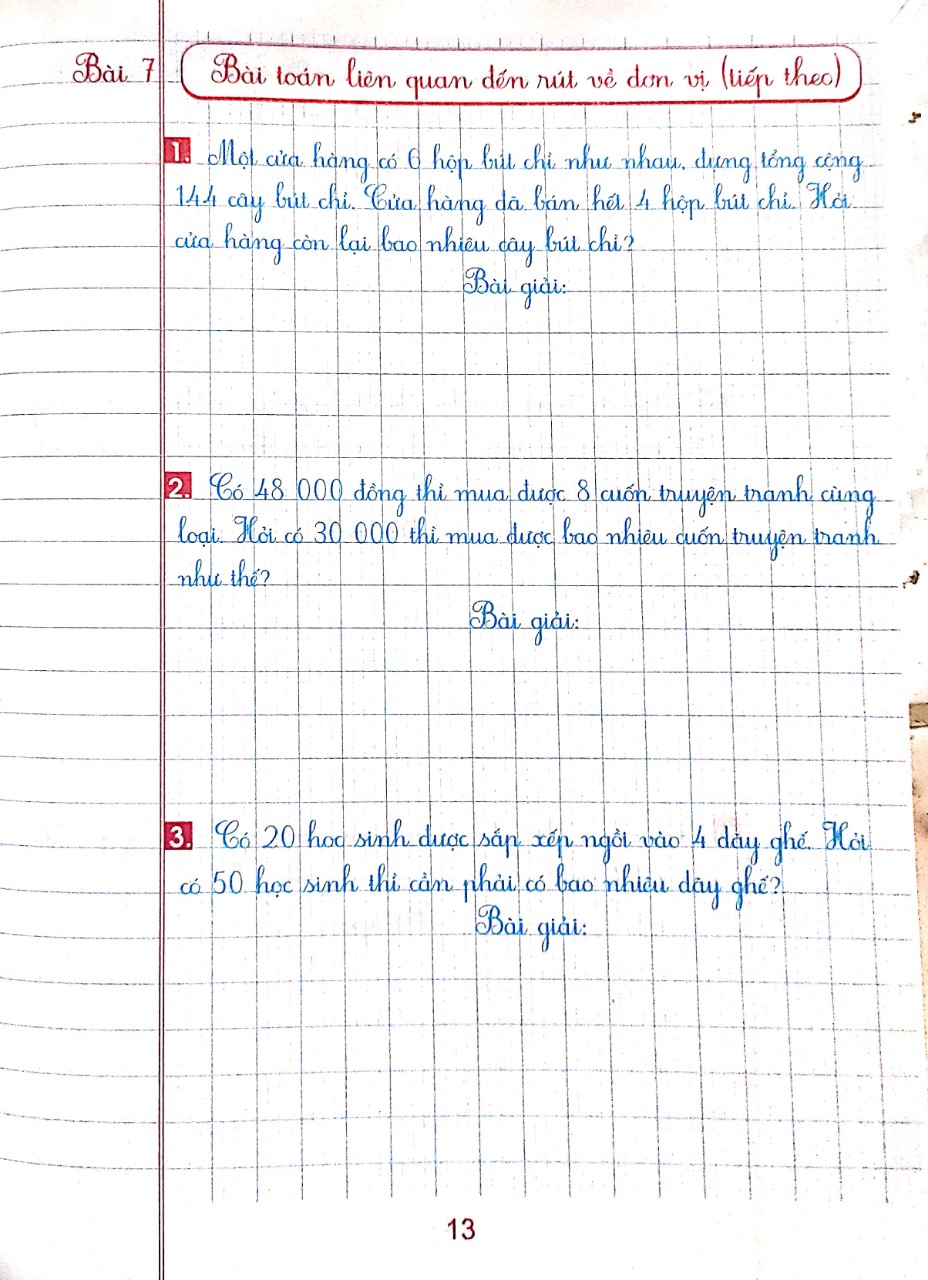 Bài 7 Bài toán liên quan đến rút về đơn vị (tiếp theo)
1. Một cửa hàng có 6 hộp bút chì như nhau, đựng tổng cộng
144 cây bút chì. Cửa hàng đã bán hết 4 hộp bút chì. Hỏi
cửa hàng còn lại bao nhiêu cây bút chì?
Bài giải:
2. Có 48 000 đồng thì mua được 8 cuốn truyện tranh cùng
loại. Hỏi có 30 000 thì mua được bao nhiêu cuốn truyện tranh
như thế?
Bài giải:
3. Có 20 học sinh được sắp xếp ngồi vào 4 dãy ghế. Hỏi
có 50 học sinh thì cần phải có bao nhiêu dãy ghế?
Bài giải:
13